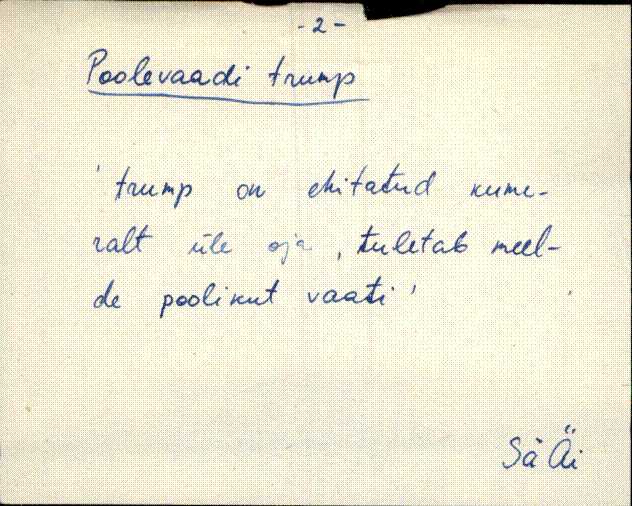 - 2 -
Poolevaadi trump
' trump on ehitatud kume-
ralt üle oja, tuletab meel-
de poolikut vaati '
Sä Äi